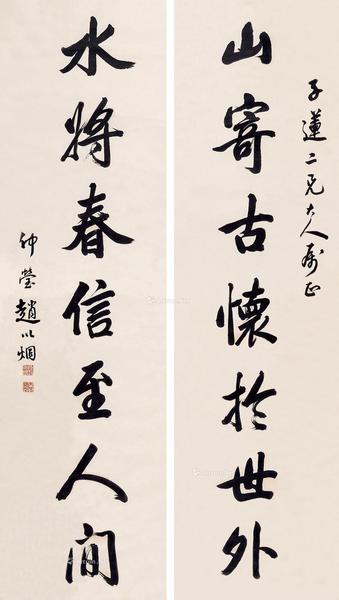 子蓮二兄大人属正
山寄古懷於世外
水將春信至人間
仲瑩趙以烱